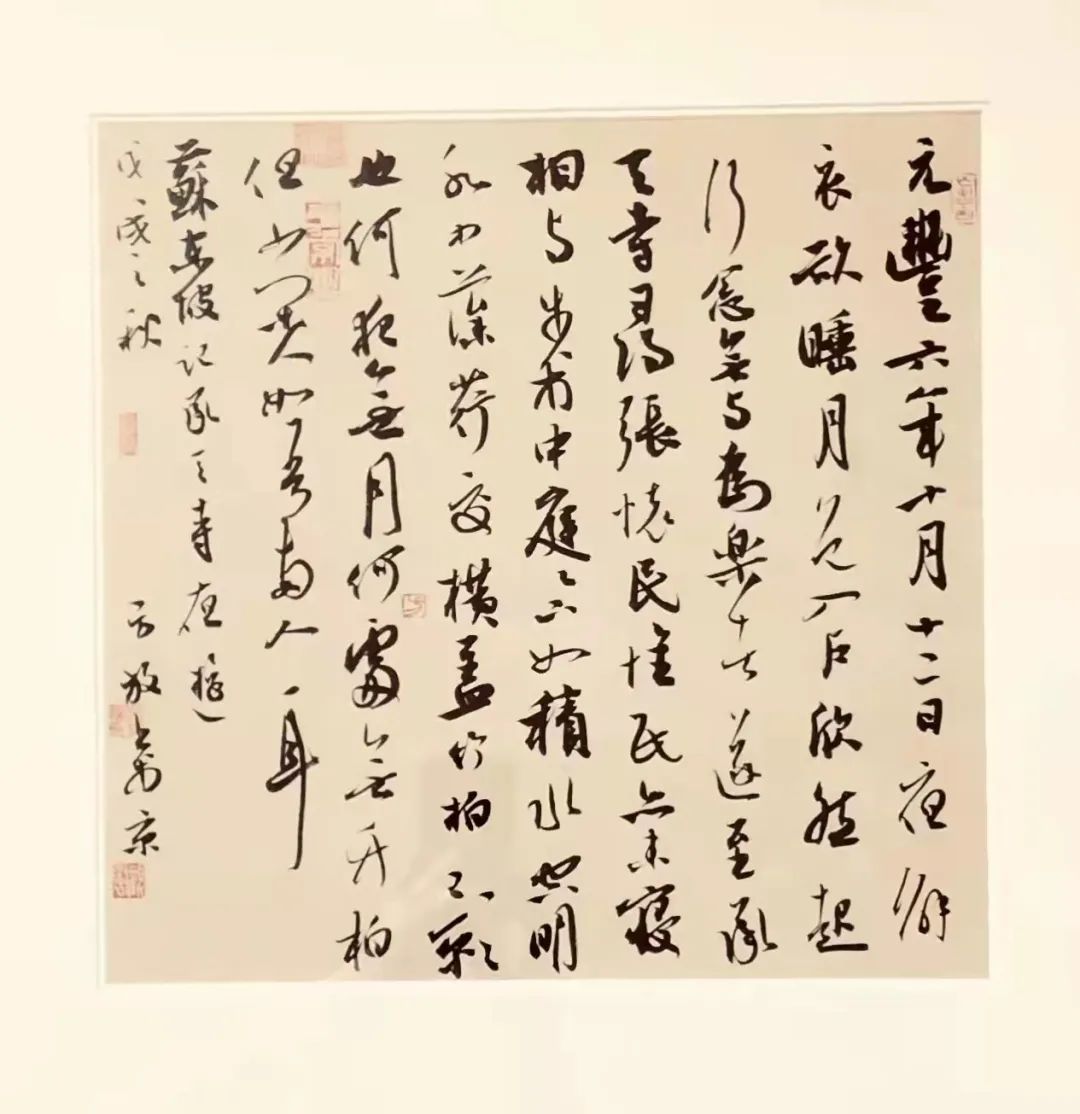 元豐六年十月十二日夜解
衣欲睡月色入戶欣然起
行念無与為樂者遂至承
天寺尋張懷民懷民亦未寢
相与步於中庭〻下如積水空明
水中藻荇交橫蓋竹柏之影
也何夜無月何處無竹柏
但少閑人如吾兩人耳
蘇東坡記承天寺夜遊
戊戌之秋 方放